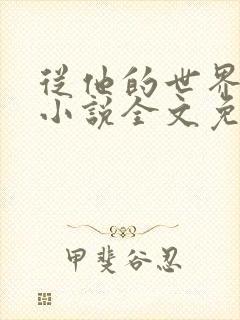 從他的世界
小說全文免
甲斐谷忍